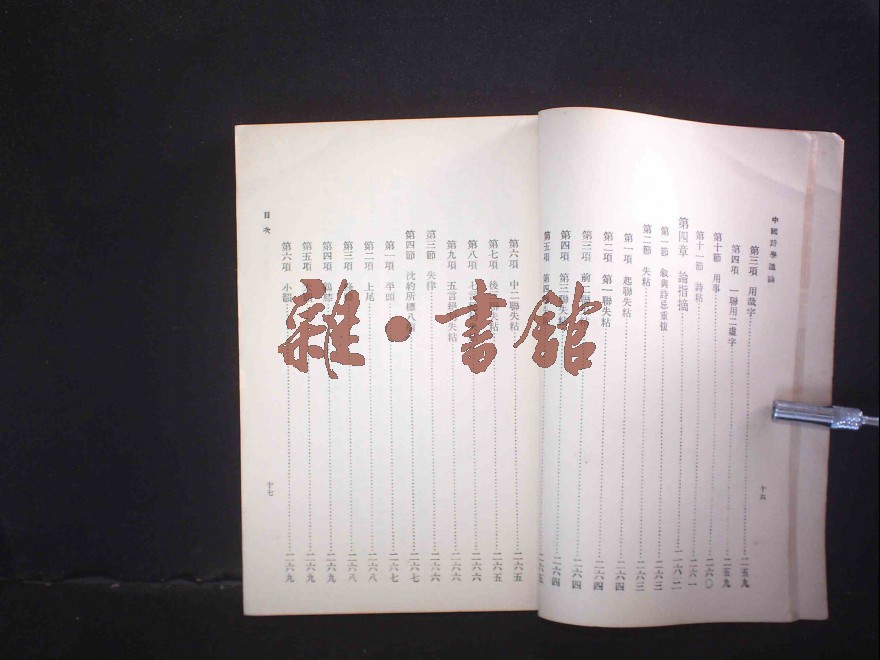 中國詩學通論
第三項 用戲字 二五九
第四項 一聯用二處字 二五九
第十節 用事 二六〇
第十一節 詩粘 二六一
第四章 論指摘 二六二
第一節 敘與詩忌重複 二六三
第二節 失粘 二六三
第一項 起聯失粘 二六四
第二項 第一聯失粘 二六四
第三項 前二 二六四
第四項 第三聯失粘 二六四
第五項 第四 二六五
十六
第六項 中二聯失粘 二六五
第七項 後 失粘 二六五
第八項 七言 二六六
第九項 五言絕 失粘 二六六
第三節 失律 二六六
第四節 沈約所標八 二六七
第一項 平頭 二六七
第二項 上尾 二六八
第三項 二六八
第四項 鶴膝 二六九
第五項 二六九
第六項 小韻 二六九
目次
十七
雜·書館